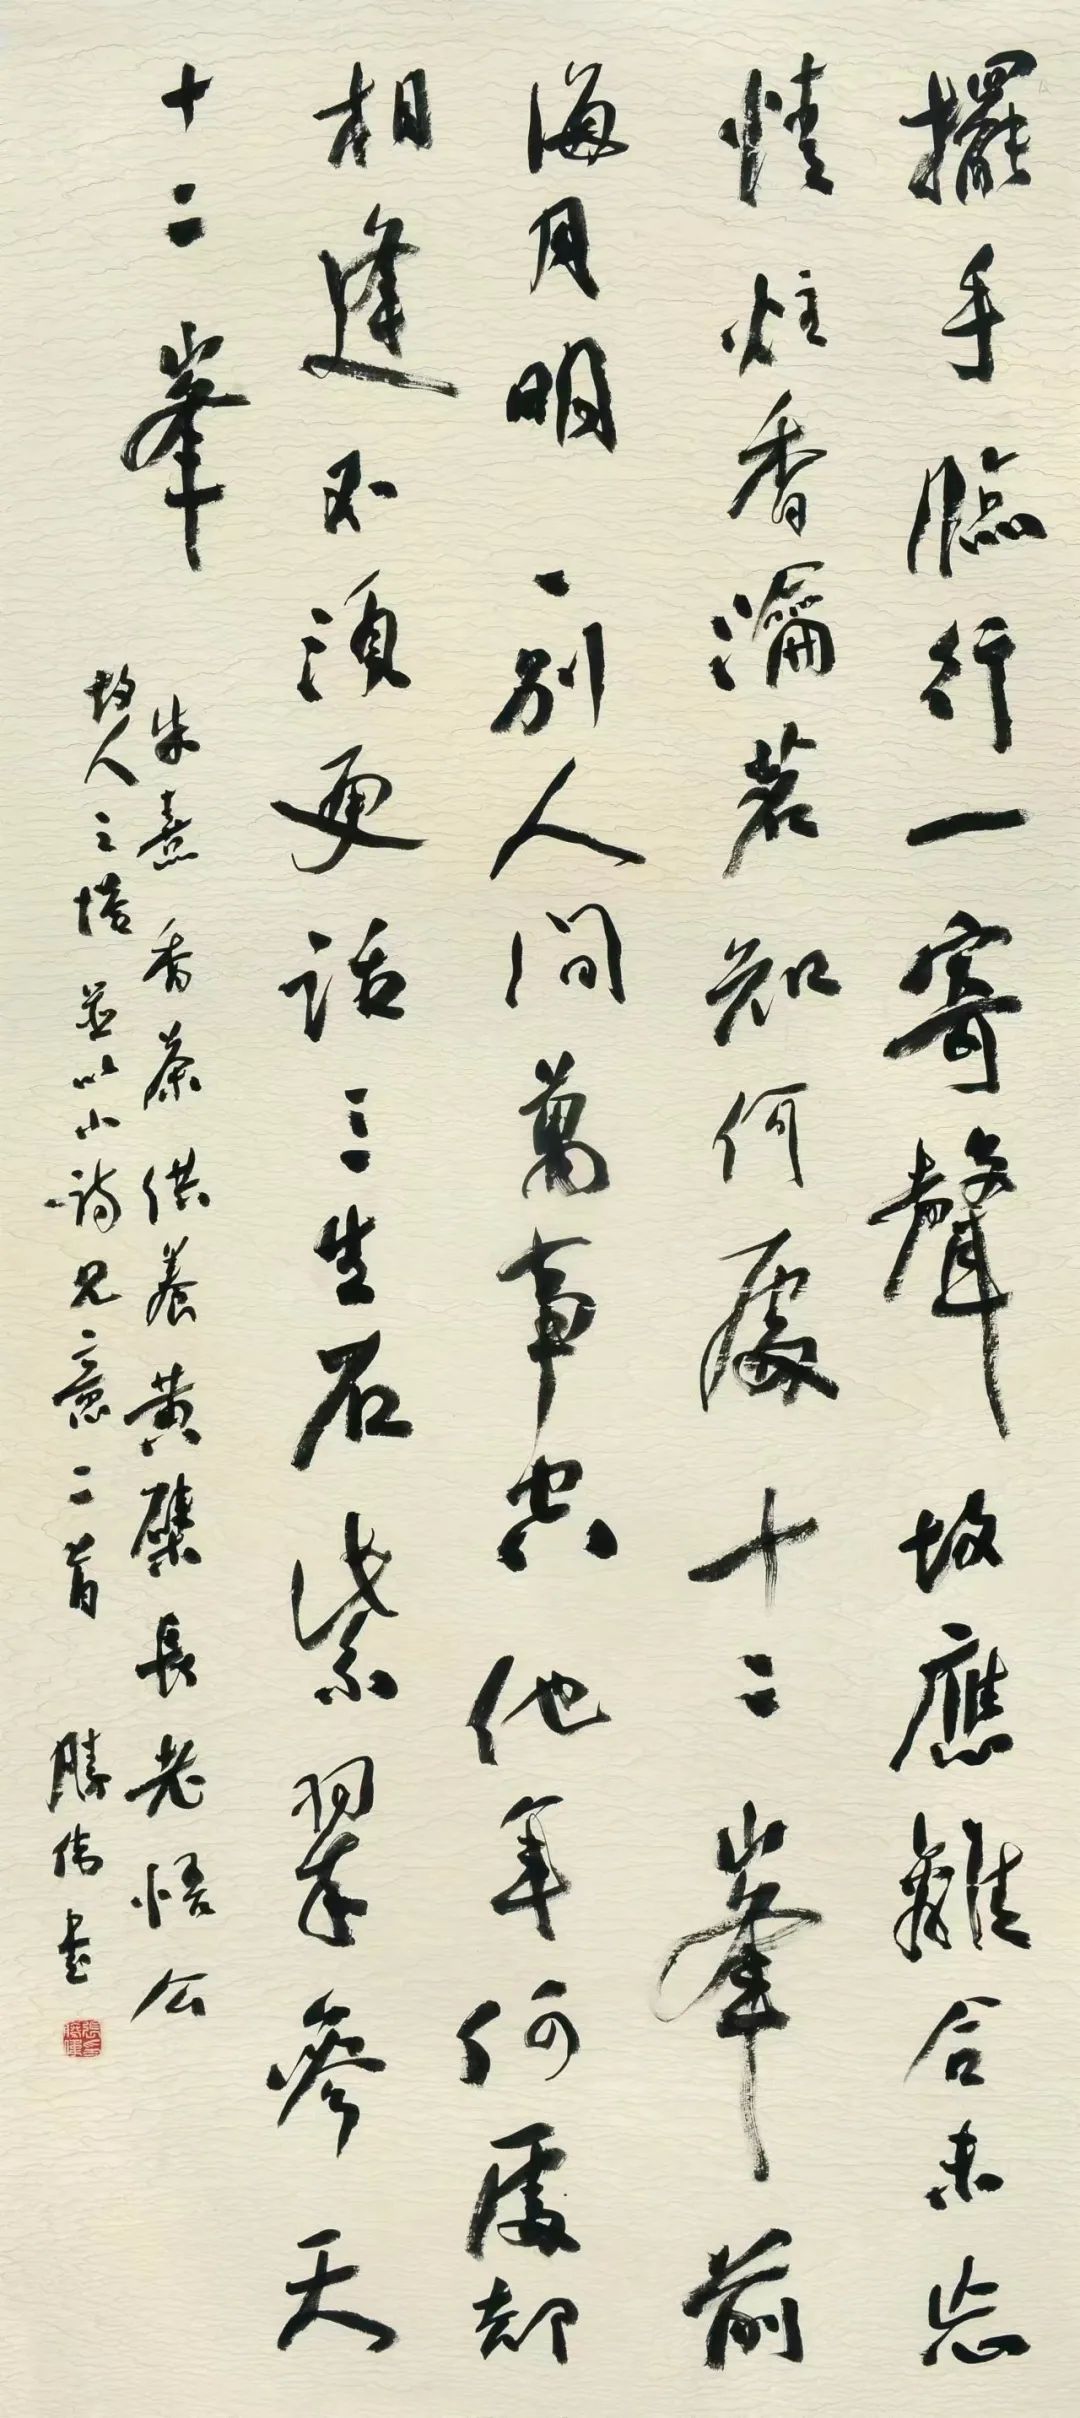 擺手臨行一寄聲故應離合未忘
情炷香瀹茗知何處十二峯前
海月明一別人間萬事空他年何處却
相逢不須更話三生石紫翠參天
十二峯
朱熹香茶供養黃檗長老悟公
故人之塔並以小詩見意二首 勝偉書